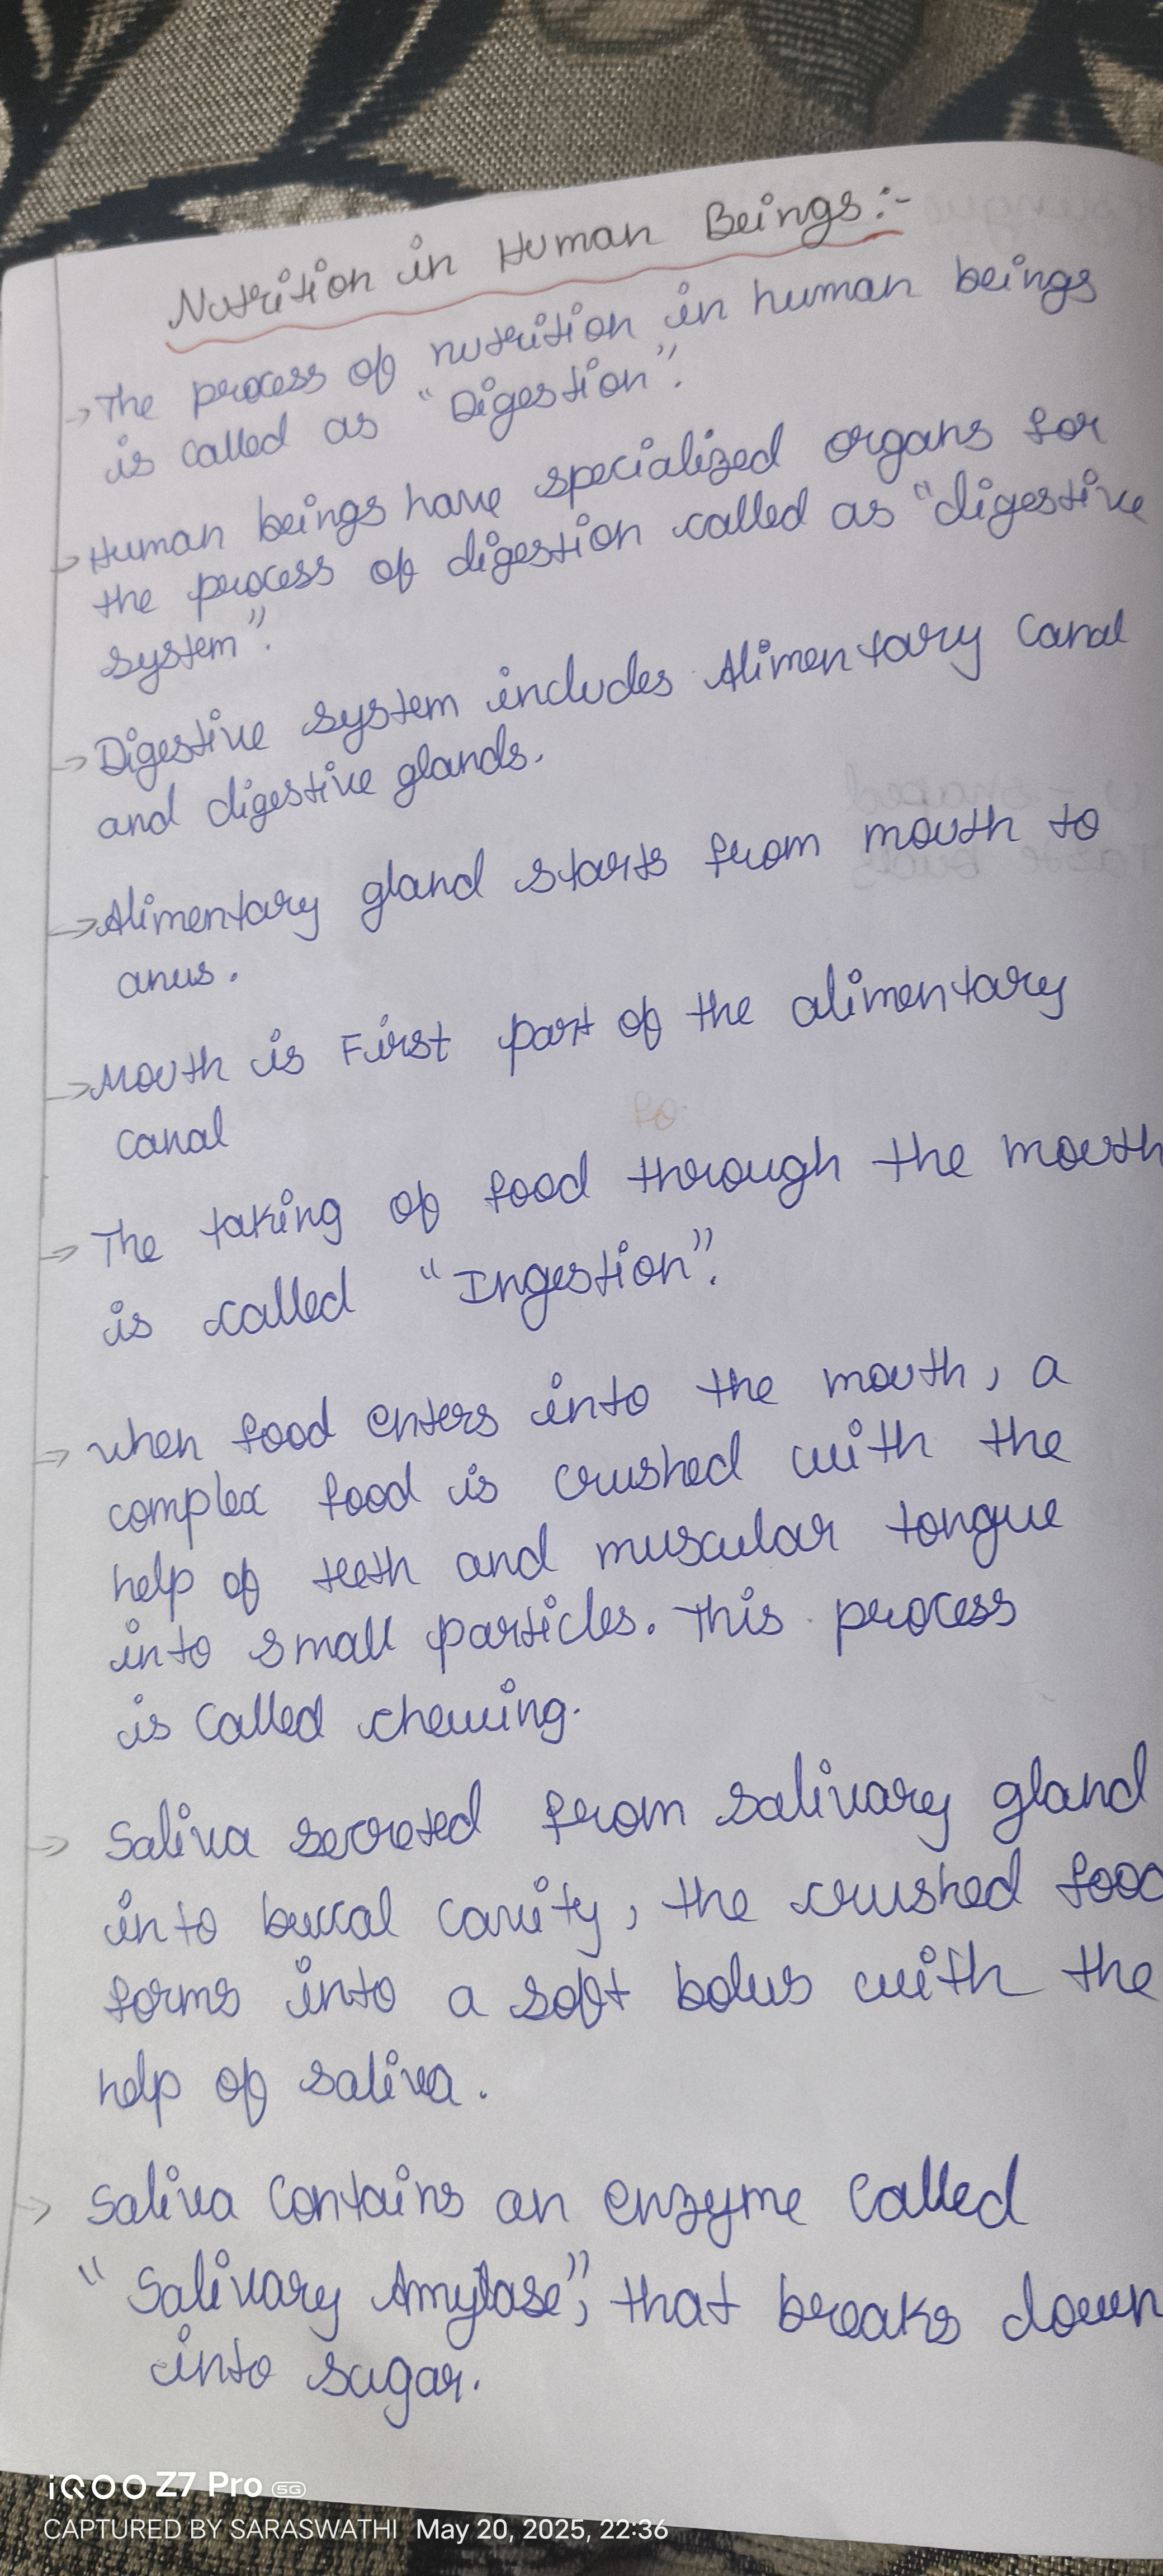 Nutrition in Human Beings :-
→ The process of nutrition in human beings
is called as "Digestion".
→ Human beings have specialized organs for
the process of digestion called as "digestive
system".
→ Digestive system includes Alimentary Canal
and digestive glands.
→ Alimentary gland starts from mouth to
anus.
→ Mouth is First part of the alimentary
Canal
→ The taking of food through the mouth
is called "Ingestion".
→ when food enters into the mouth, a
complex food is crushed with the
help of teeth and muscular tongue
into small particles. This process
is called chewing.
→ Saliva secreted from salivary gland
into buccal cavity, the crushed food
forms into a soft bolus with the
help of saliva.
→ Saliva Contains an enzyme called
"Salivary Amylase", that breaks down
into sugar.
iQOO Z7 Pro 5G
CAPTURED BY SARASWATHI May 20, 2025, 22:36